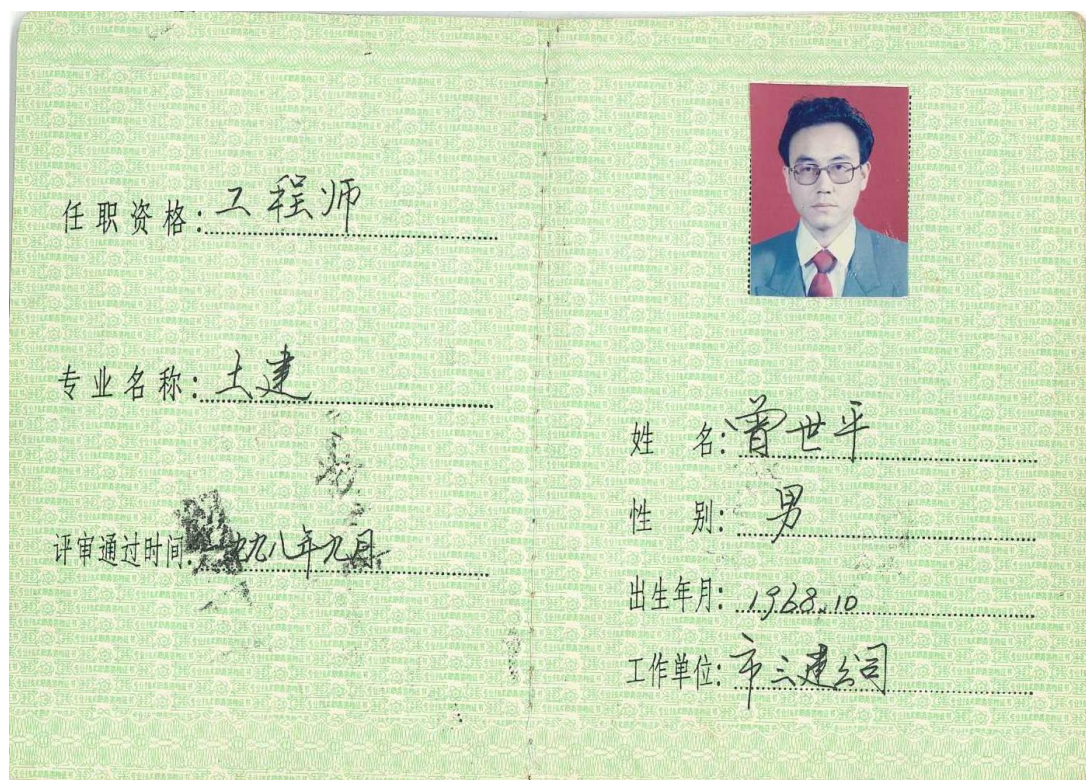 任职资格：工程师
专业名称：土建
评审通过时间：一九九八年九月
姓 名：曾世平
性 别：男
出生年月：1968.10
工作单位：市三建公司